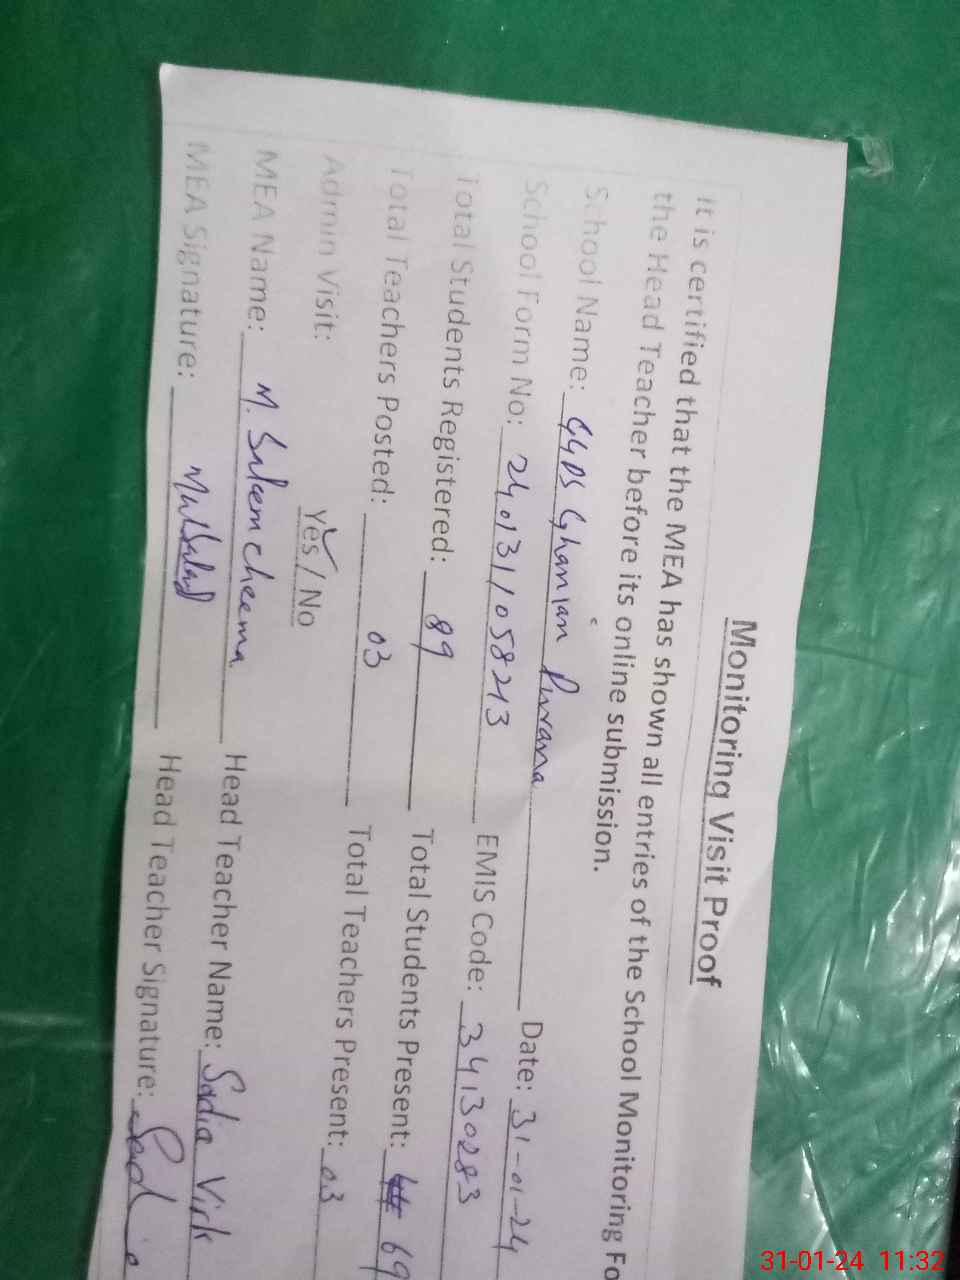 Monitoring Visit Proof
It is certified that the MEA has shown all entries of the School Monitoring Fo
the Head Teacher before its online submission.
School Name: GGPS Ghanian Purana Date: 31-01-24
School Form No: 240131105 8243 EMIS Code: 34130283
Total Students Registered: 89 Total Students Present: 69
Total Teachers Posted: 03 Total Teachers Present: 03
Admin Visit: Yes / No
MEA Name: M. Saleem Cheema Head Teacher Name: Sadia Virk
MEA Signature: Head Teacher Signature:
31-01-24 11:32